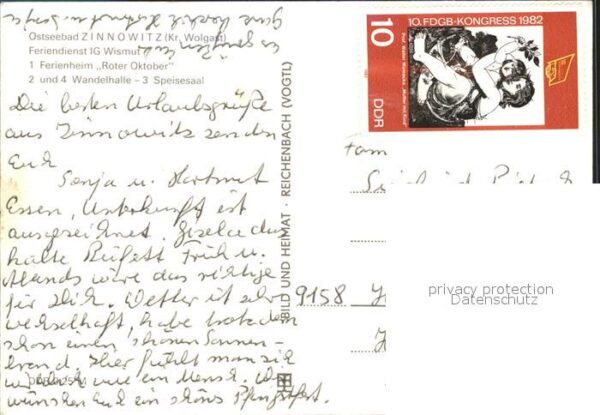 Ostseebad ZINNOWITZ (Kr. Wolgast)
Feriendienst IG Wismut
1 Ferienheim „Roter Oktober"
2 und 4 Wandelhalle – 3 Speisesaal
Die besten Urlaubsgrüße
aus Zinnowitz senden
Euch
Sonja u. Hartmut
Essen, Unterkunft ist
ausgezeichnet. Gisela das
kalte Büfett Früh u.
Abends wäre das richtige
für Dich. Wetter ist sehr
wechselhaft, habe trotzdem
schon einen schönen Sonnen-
brand. Hier fühlt man sich
wie ein Mensch. Wir
wünschen Euch ein schönes Pfingstfest.
BILD UND HEIMAT · REICHENBACH (VOGTL)
10. FDGB-KONGRESS 1982
10
DDR
Fam
9158
privacy protection
Datenschutz